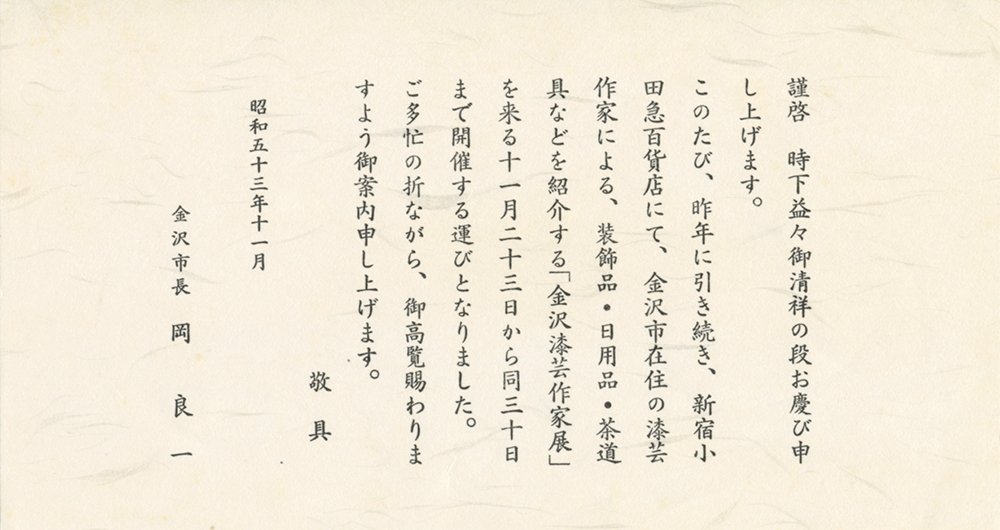 謹啓　時下益々御清祥の段お慶び申
し上げます。
このたび、昨年に引き続き、新宿小
田急百貨店にて、金沢市在住の漆芸
作家による、装飾品・日用品・茶道
具などを紹介する「金沢漆芸作家展」
を来る十一月二十三日から同三十日
まで開催する運びとなりました。
ご多忙の折ながら、御高覧賜わりま
すよう御案内申し上げます。
敬具
昭和五十三年十一月
金沢市長　岡　良一